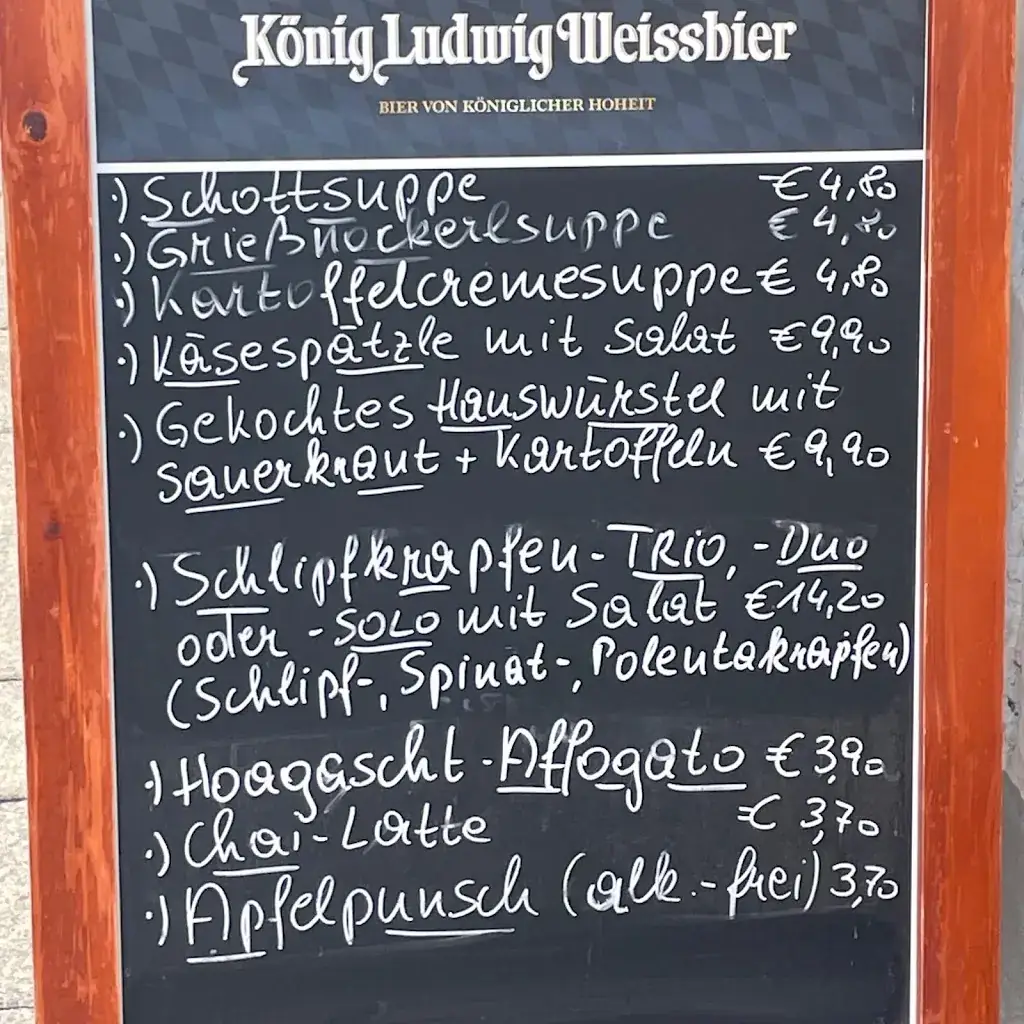 König Ludwig Weissbier
BIER VON KÖNIGLICHER HOHEIT
·) Schottsuppe € 4,80
·) Grießnockerlsuppe € 4,80
·) Kartoffelcremesuppe € 4,80
·) Käsespätzle mit Salat € 9,90
·) Gekochtes Hauswürstel mit
Sauerkraut + Kartoffeln € 9,90
·) Schlipfkrapfen-TRIO, -Duo
oder -SOLO mit Salat €14,20
(Schlipf-, Spinat-, Polentakrapfen)
·) Hoagascht-Affogato € 3,90
·) Chai-Latte € 3,70
·) Apfelpunsch (alk.-frei) 3,70